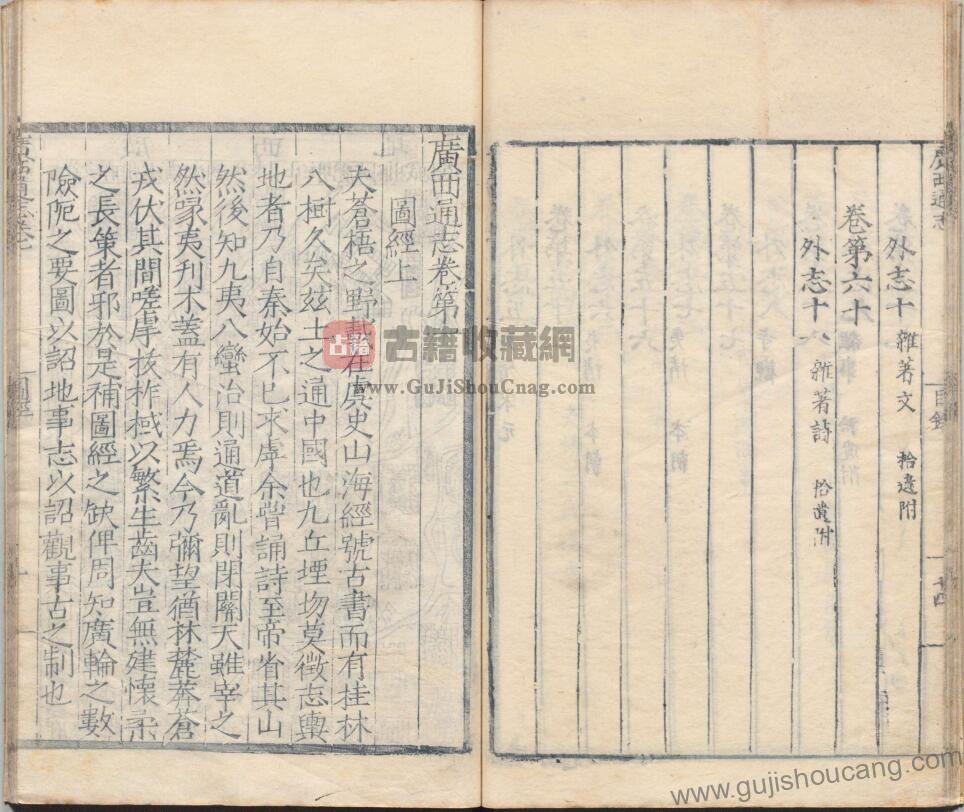 外志十 雜著文 拾遺附
卷第六十
外志十八 雜著詩 拾遺附
目錄
廣西通志
廣西通志卷第
圖經上
夫蒼梧之野載在虞史山海經號古書而有桂林
八樹久矣茲土之通中國也九丘堙圽莫徵志輿
地者乃自秦始不已來虖余嘗誦詩至帝省其山
然後知九夷八蠻治則通道亂則閉關天雖宰之
然喙夷刋木蓋有人力焉今乃彌望猶林麓莽蒼
戎伏其間嗟虖拔柞棫以繁生齒夫豈無建懷柔
之長策者邪於是補圖經之缺俾周知廣輪之數
險阨之要圖以詔地事志以詔觀事古之制也
圖經
古籍收藏網
www.GuJiShouCang.com
www.gujishoucang.com